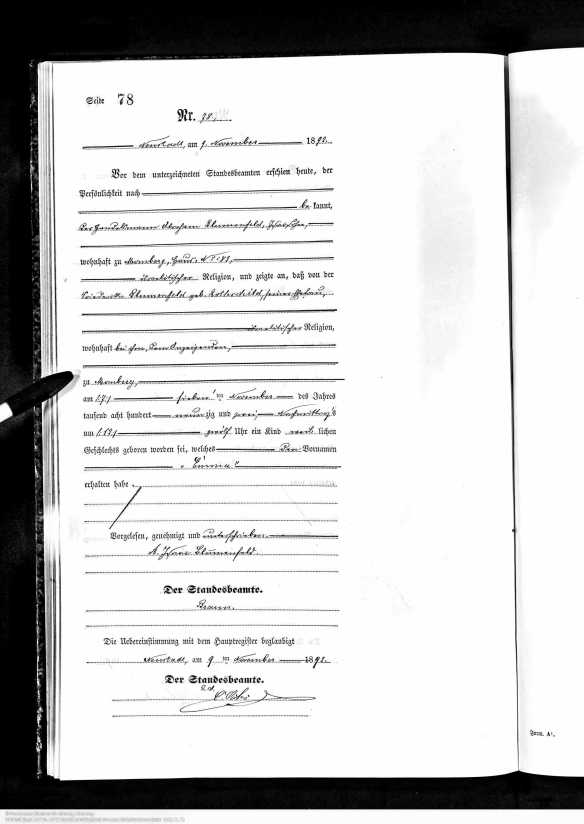 Seite 78
Nr. 78.
Neustadt, am 9. November 1892.
Vor dem unterzeichneten Standesbeamten erschien heute, der
Persönlichkeit nach
be kannt,
der Handelsmann Abraham Blumenfeld,
wohnhaft zu Momberg, Haus N°
israelitischer Religion, und zeigte an, daß von der
Blumenfeld geb. seiner Ehefrau,
israelitischer Religion,
wohnhaft bei ihm, dem Anzeigenden,
zu Momberg,
am (7.) sieben ten November des Jahres
tausend acht hundert neun zig und zwei, Nachmittags
um (12) zwölf Uhr ein Kind weib lichen
Geschlechts geboren worden sei, welches den Vornamen
"Emma"
erhalten habe.
Vorgelesen, genehmigt und unterschrieben.
A. Isaac Blumenfeld.
Der Standesbeamte.
Die Uebereinstimmung mit dem Hauptregister beglaubigt
Neustadt, am 9 ten November 1892.
Der Standesbeamte.
Form. A¹.